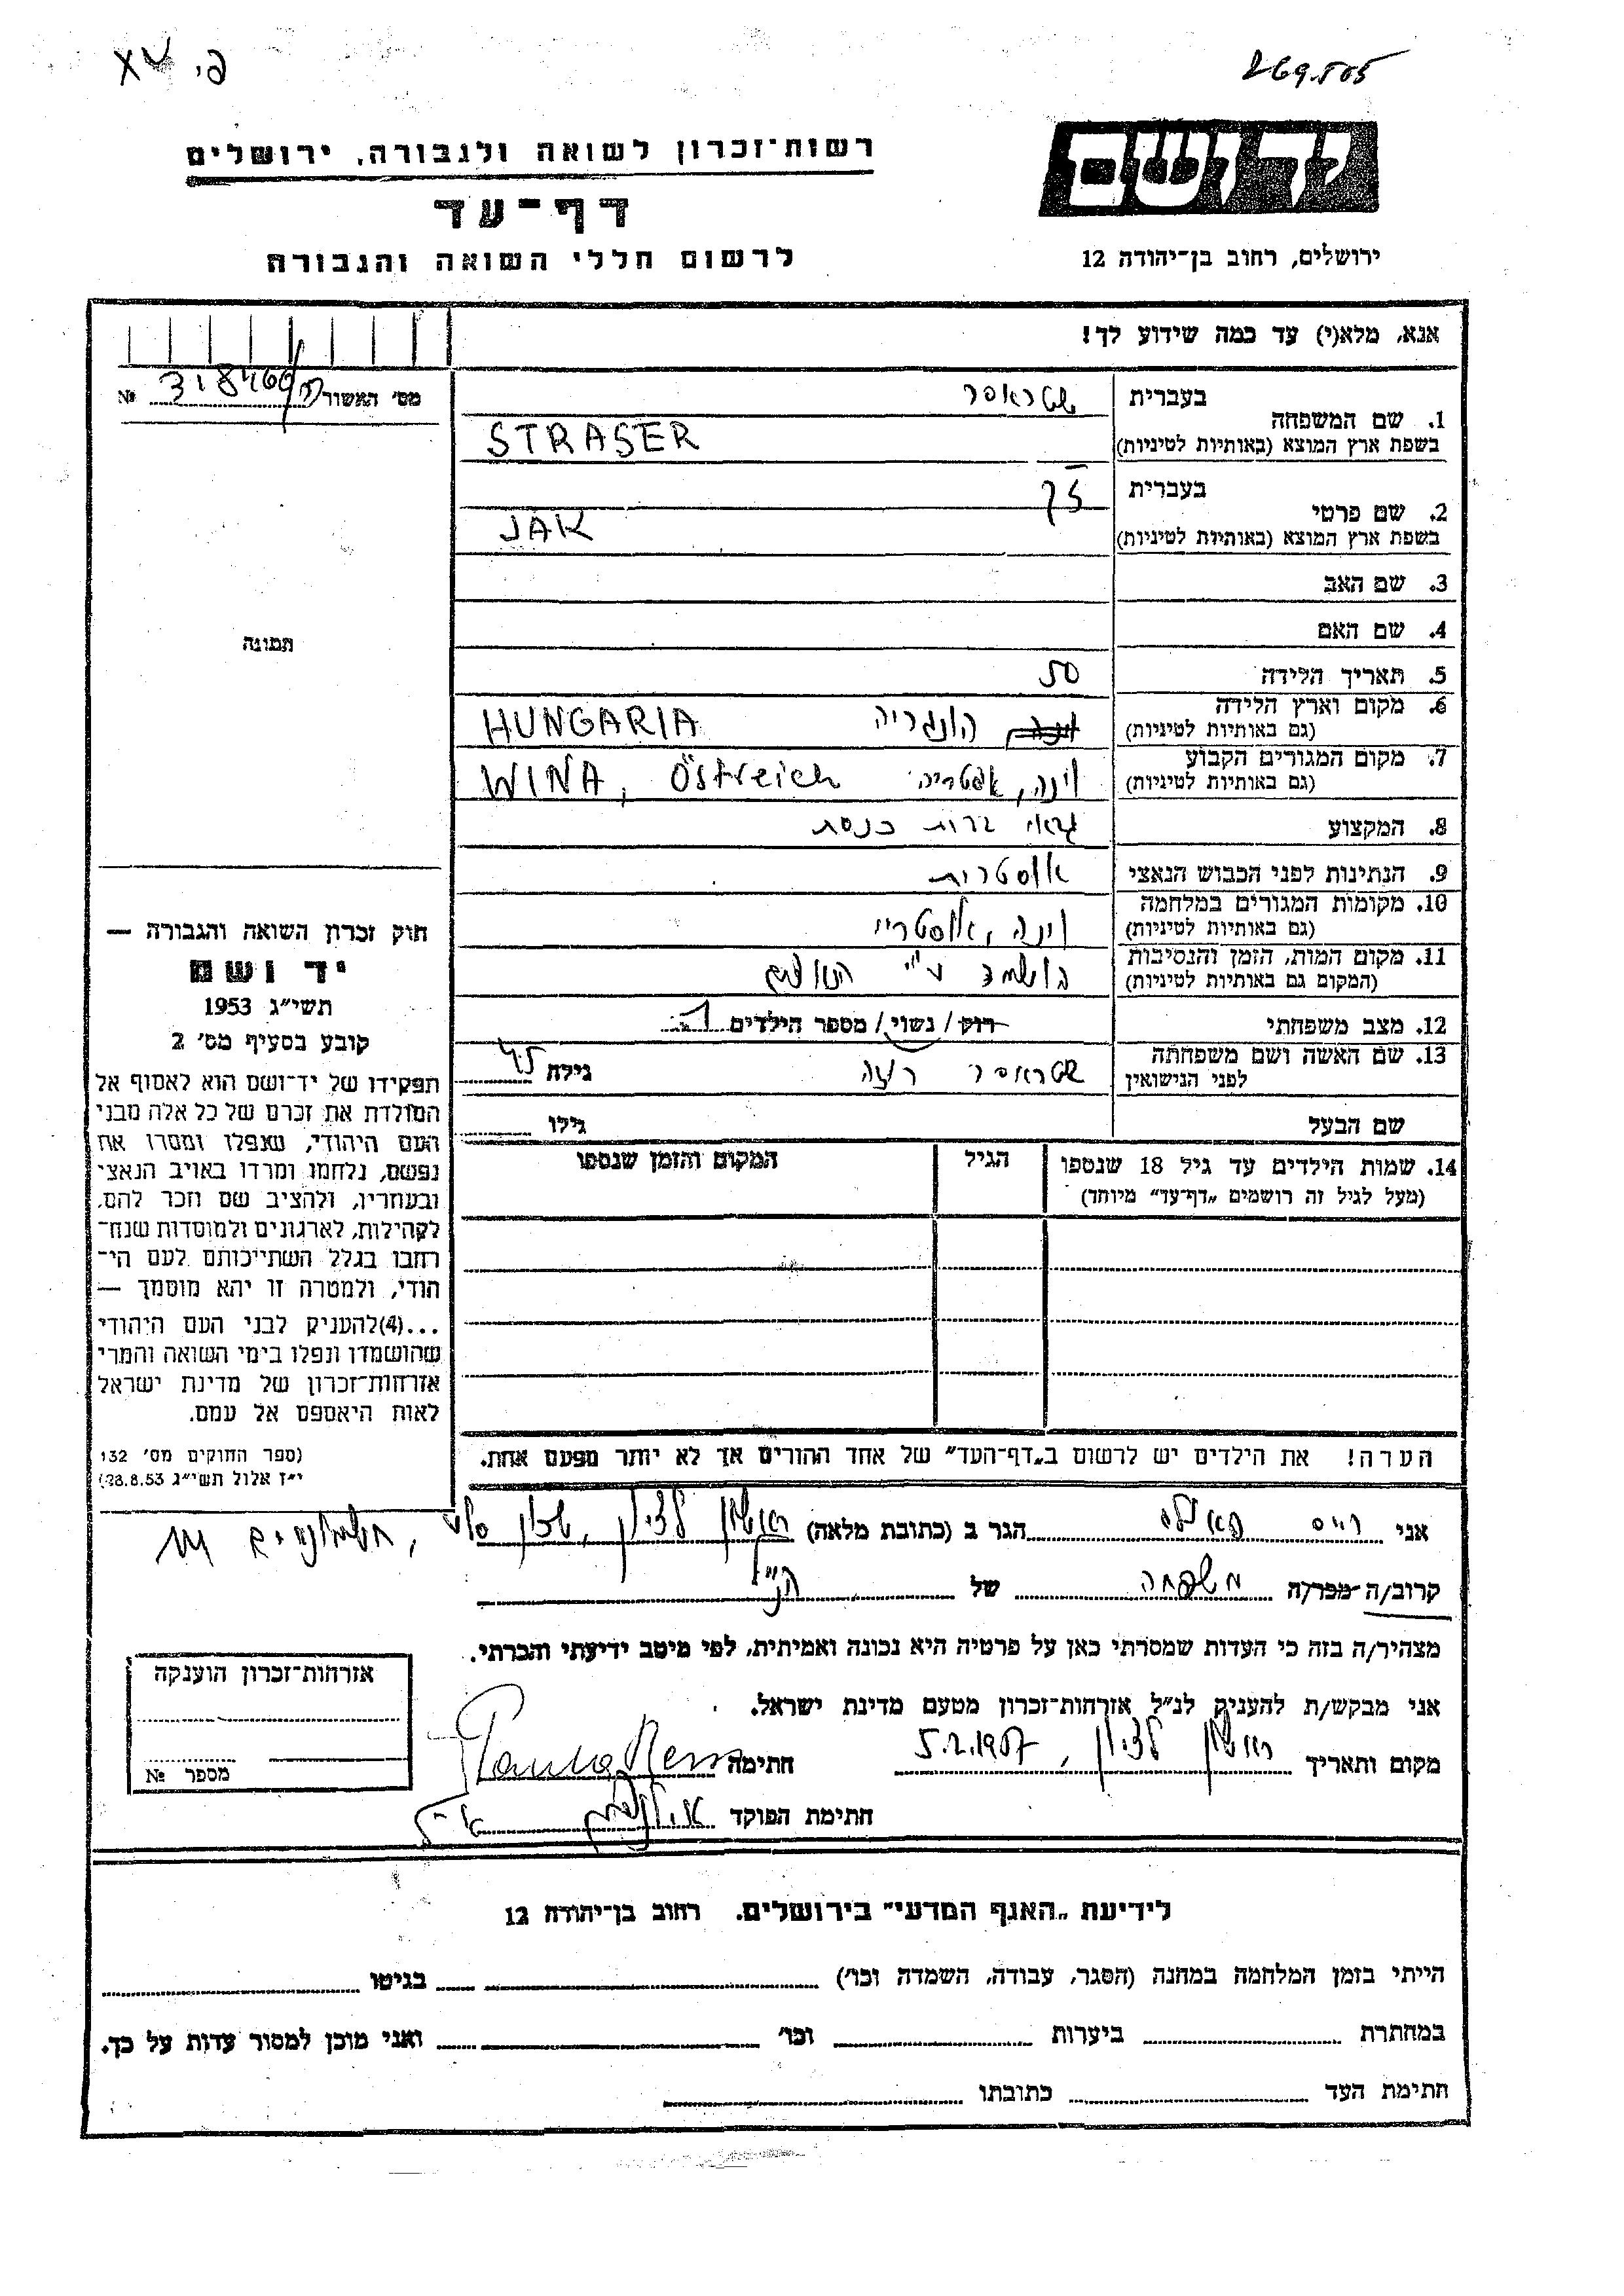 269.505
רשות־זכרון לשואה ולגבורה, ירושלים
יד ושם
דף־עד
לרשום חללי השואה והגבורה
ירושלים, רחוב בן־יהודה 12
אנא, מלא(י) עד כמה שידוע לך!
מס׳ האשור № 318466
1. שם המשפחה בעברית שטראסר
בשפת ארץ המוצא (באותיות לטיניות) STRASER
2. שם פרטי בעברית ז'ק
בשפת ארץ המוצא (באותיות לטיניות) JAK
3. שם האב
4. שם האם
תמונה
5. תאריך הלידה 50
6. מקום וארץ הלידה הונגריה HUNGARIA
(גם באותיות לטיניות)
7. מקום המגורים הקבוע וינה, אוסטריה WINA, Östreich
(גם באותיות לטיניות)
8. המקצוע גבאי בית כנסת
9. הנתינות לפני הכבוש הנאצי אוסטרית
10. מקומות המגורים במלחמה וינה, אוסטריה
(גם באותיות לטיניות)
11. מקום המות, הזמן והנסיבות הושמד ע"י הנאצים
(המקום גם באותיות לטיניות)
12. מצב משפחתי רוק/נשוי/ מספר הילדים 1
13. שם האשה ושם משפחתה לפני הנישואין שטראסר רוזה גילה 45
שם הבעל גילו
14. שמות הילדים עד גיל 18 שנספו הגיל המקום והזמן שנספו
(מעל לגיל זה רושמים „דף־עד״ מיוחד)
חוק זכרון השואה והגבורה —
יד ושם
תשי״ג 1953
קובע בסעיף מס׳ 2
תפקידו של יד־ושם הוא לאסוף אל
המולדת את זכרם של כל אלה מבני
העם היהודי, שנפלו ומסרו את
נפשם, נלחמו ומרדו באויב הנאצי
ובעוזריו, ולהציב שם וזכר להם,
לקהילות, לארגונים ולמוסדות שנח־
רחבו בגלל השתייכותם לעם הי־
הודי, ולמטרה זו יהא מוסמך —
...(4)להעניק לבני העם היהודי
שהושמדו ונפלו בימי השואה והמרי
אזרחות־זכרון של מדינת ישראל
לאות היאספם אל עמם.
(ספר החוקים מס׳ 132
י״ז אלול תשי״ג 28.8.53)
הערה! את הילדים יש לרשום ב„דף־העד״ של אחד ההורים אך לא יותר מפעם אחת.
אני רייס פאולה הגר ב (כתובת מלאה) ראשון לציון, שכון
קרוב/ה מכר/ה משפחה של הנ"ל
מצהיר/ה בזה כי העדות שמסרתי כאן על פרטיה היא נכונה ואמיתית, לפי מיטב ידיעתי והכרתי.
אני מבקש/ת להעניק לנ״ל אזרחות־זכרון מטעם מדינת ישראל.
מקום ותאריך ראשון לציון, 5.2.1957 חתימה Paula Reiss
חתימת הפוקד
אזרחות־זכרון הוענקה
מספר №
לידיעת „האגף המדעי״ בירושלים. רחוב בן־יהודה 12
הייתי בזמן המלחמה במחנה (הסגר, עבודה, השמדה וכו׳) בגיטו
במחתרת ביערות וכו׳ ואני מוכן למסור עדות על כך.
חתימת העד כתובתו